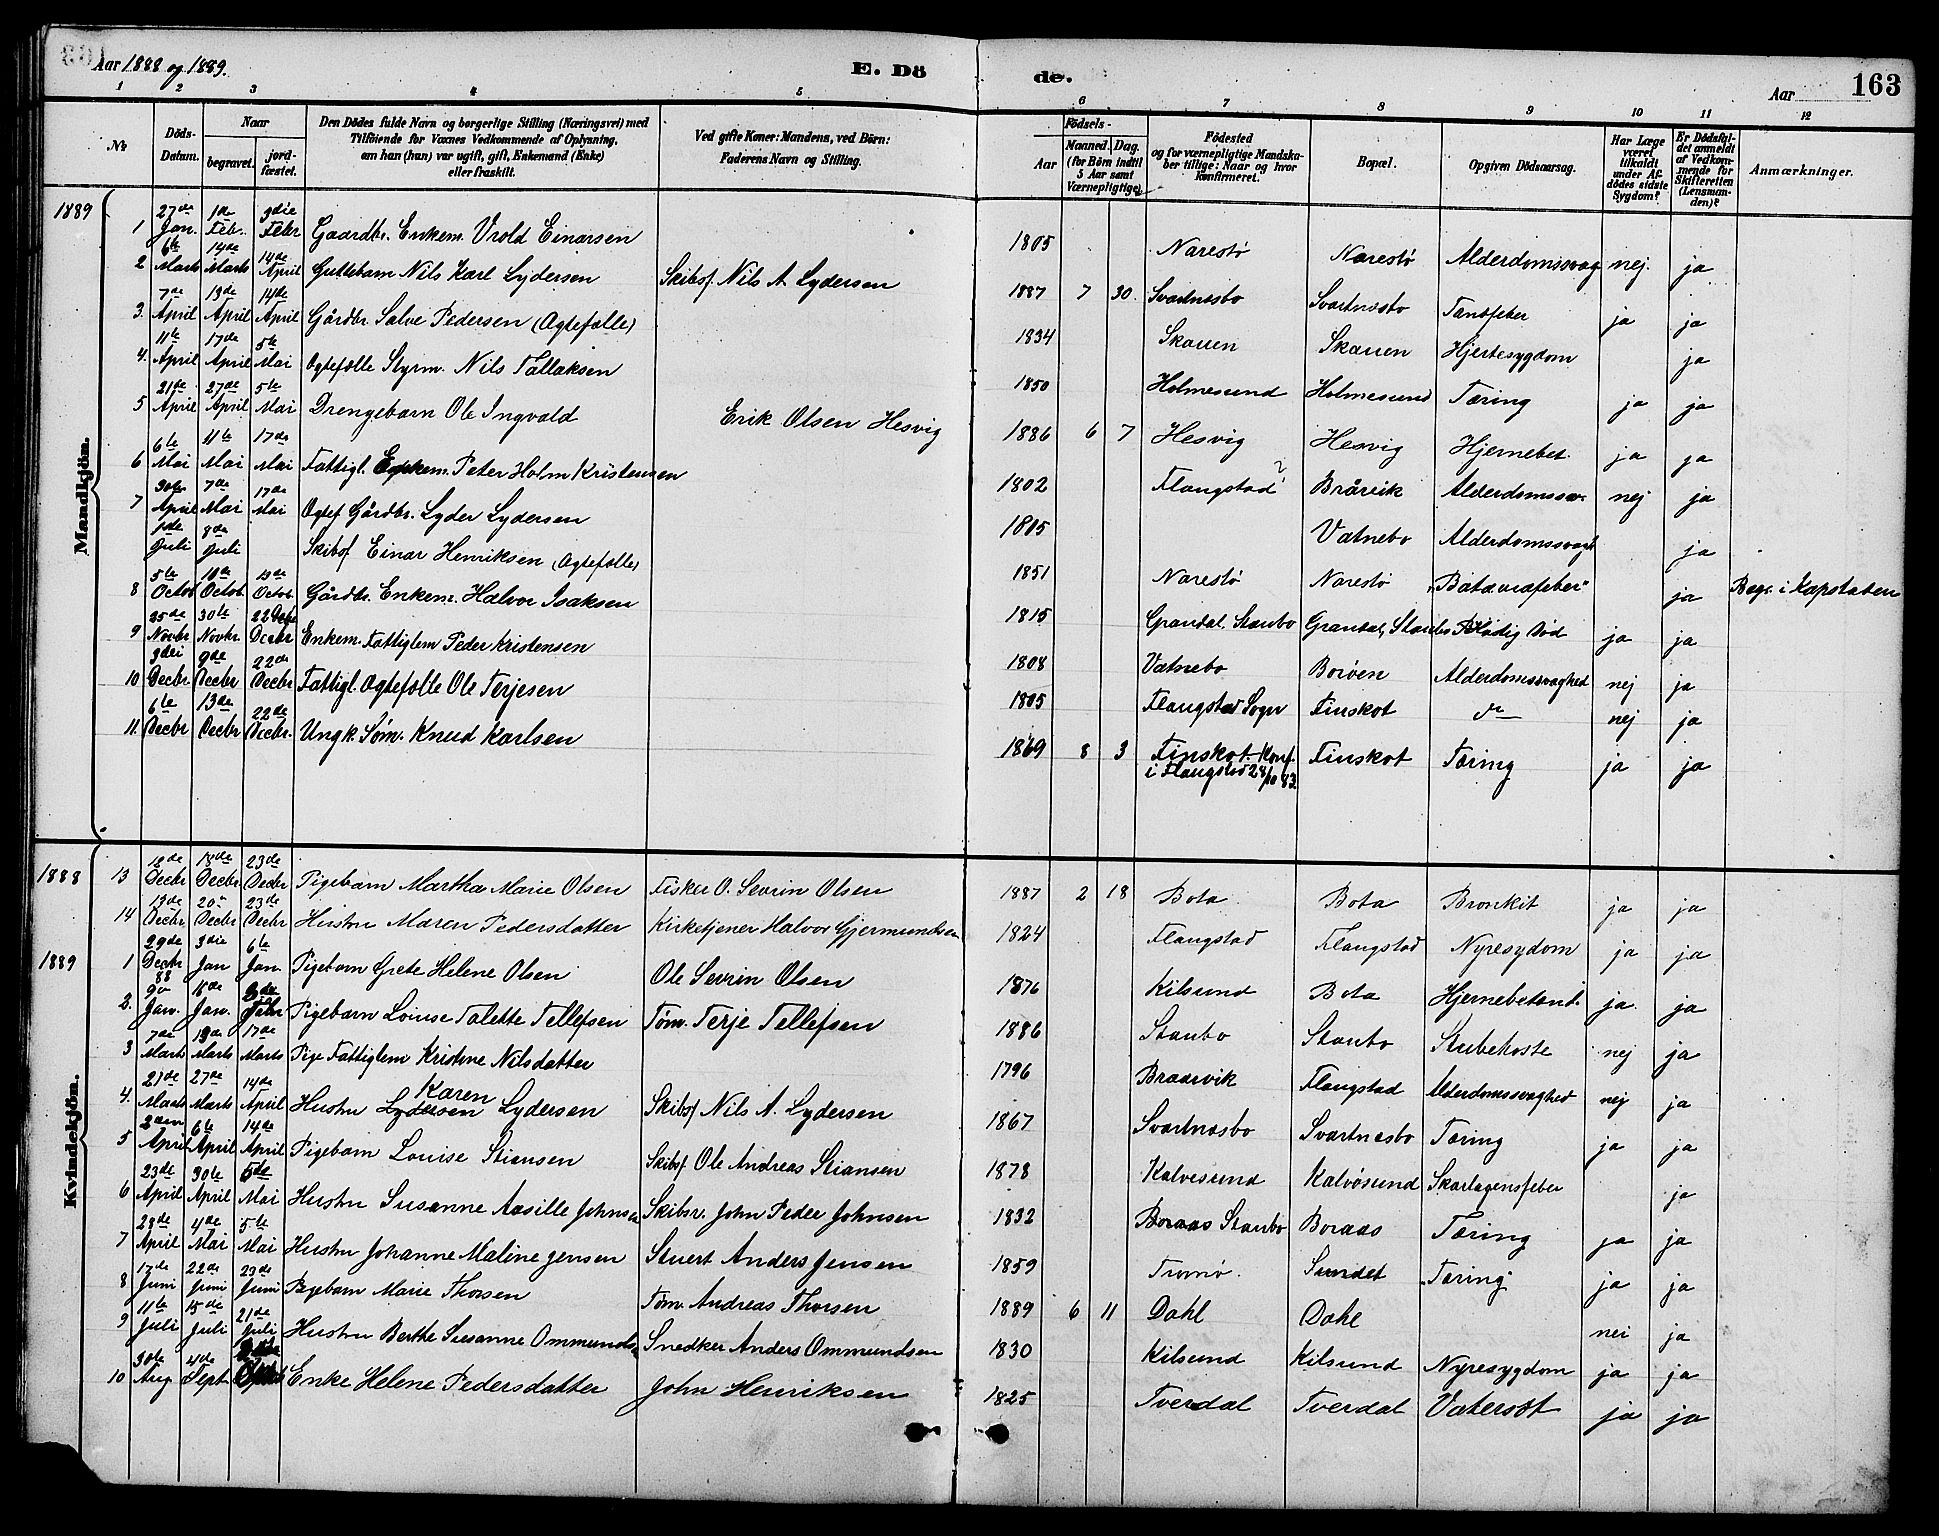 Aar 1888 og 1889. E. Dö de. Aar 163
1 2 3 4 5 6 7 8 9 10 11 12
No Döds-Datum. Naar begravet. jordfæstet. Den Dödes fulde Navn og borgerlige Stilling (Næringsvei) med Tilföiende for Voxnes Vedkommende af Oplysning, om han (hun) var ugift, gift, Enkemand (Enke) eller fraskilt. Ved gifte Koner: Mandens, ved Börn: Faderens Navn og Stilling. Födsels- Aar Maaned. Dag. (for Börn indtil 5 Aar samt Værnepligtige). Födested og for værnepligtige Mandskaber tillige: Naar og hvor konfirmeret. Bopæl. Opgiven Dödsaarsag. Har Læge været tilkaldt under Afdödes sidste Sygdom? Er Dödsfaldet anmeldt af Vedkommende for Skifteretten (Lensmanden)? Anmærkninger.
Mandkjön.
1889 1 27de Jan. 1de Febr. 3die Febr Gaardbr. Enkem. Vrold Einarsen 1805 Narestö Narestö Alderdomssvag nej. ja
2 6te Marts 14de Marts 14de April Guttebarn Nils Karl Lydersen Skibsf. Nils A Lydersen 1887 7 30. Svartnesbo Svartnesbo Tandfeber ja ja
3. 7de April 13de April 14de April Gårdbr. Salve Pedersen (Ægtefælle) 1834 Skauen Skauen Hjertesygdom ja
4. 11te April 17de April 5te Mai Ægtefælle Styrm. Nils Tallaksen 1850 Holmesund Holmesund Tæring ja ja
5 21de April 27de April 5te Mai Drengebarn Ole Ingvald Erik Olsen Hesvig 1886 6 7 Hesvig Hesvig Hjernebet. ja ja
6 6te Mai 11te Mai 17de Mai Fattigl. Enkem. Peter Holm Kristensen 1802 Flangstad? Brårvik Alderdomssv. nej ja
7 30te April 7de Mai 17de Mai Ægtef Gårdbr. Lyder Lydersen 1805 Vatnebo Alderdomssvagh ja
1de Juli 8de Juli Skibsf Einar Henriksen (Ægtefælle) 1851 Narestö Narestö "Bataviafeber" ja Begr. i Kapstaden
8 5te Octob 10de Octob. 13de Octob. Gårdbr. Enkem. Halvor Isaksen 1815 Grandal, Staubo Grandal, Staubo Blodig Död ja ja
9 25de Novbr 30te Novbr 22 Decbr Enkem. Fattiglem Peder Kristensen 1808 Vatnebo Boröen Alderdomssvaghed nej ja
10 3dei Decbr 9de Decbr 22de Decbr Fattigl. Ægtefælle Ole Terjesen 1805 Flangstad Sogn Finskot do nej ja
11. 6te Decbr 13de Decbr 22de Decbr. Ungk. Söm. Knud Karlsen 1869 8 3 Finskot. Konf. i Flangstad 24/10 83. Finskot Tæring ja ja
Kvindekjön.
1888 13 12de Decbr Decbr 23de Decbr Pigebarn Martha Marie Olsen Fisker O. Sevrin Olsen 1887 2 18 Bota Bota Bronkit ja ja
14 13de Decbr 20 Decbr 23de Decbr Hustru Maren Pedersdatter Kirketjener Halvor Gjermundsen 1824 Flangstad Flangstad Nyresygdom ja ja
1889 1 29de Decbr 88 3die Jan 6te Jan. Pigebarn Grete Helene Olsen Ole Sevrin Olsen 1876 Kilsund Bota Hjernebetænd. ja. ja
2. Jan. Jan. Febr Pigebarn Louise Talette Tellefsen Töm. Terje Tellefsen 1886 Staubo Staubo Strubehoste nej ja
3 7de Marts 13de Marts 17de Marts Pige Fattiglem Kristine Nilsdatter 1796 Braarvik Flangstad Alderdomssvaghed nej ja
4. 21de Marts 27de Marts 14de April Hustru Karen Lydersen Skibsf Nils A. Lydersen 1867 Svartnesbo Svartnesbo Tæring ja ja
5 2den April 6te April 14de April Pigebarn Louise Stiansen Skibsf. Ole Andreas Stiansen 1878 Kalvesund Kalvösund Skarlagensfeber ja
6 23de April 30te April 5de Mai Hustru Susanne Aasille Johnsen Skibsr. John Peder Johnsen 1832 Boraas Staubo Boraas Tæring ja ja
7 28de April 4de Mai 5te Mai Hustru Johanne Maline Jensen Stuert Anders Jensen 1859 Tromö. Sundet Tæring. ja ja
8 17de Juni 22de Juni 23de Juni Pigebarn Marie Thorsen Töm. Andreas Thorsen 1889 6 11 Dahl Dahl nei ja
9 11te Juli 15de Juli 21de Juli Hustru Berthe Susanne Ommunds. Snedker Anders Ommundsen 1830 Kilsund Kilsund Nyresygdom ja ja
10 30te Aug 4de Sept. Enke Helene Pedersdatter John Henriksen 1825 Tverdal Tverdal Vatersot ja ja